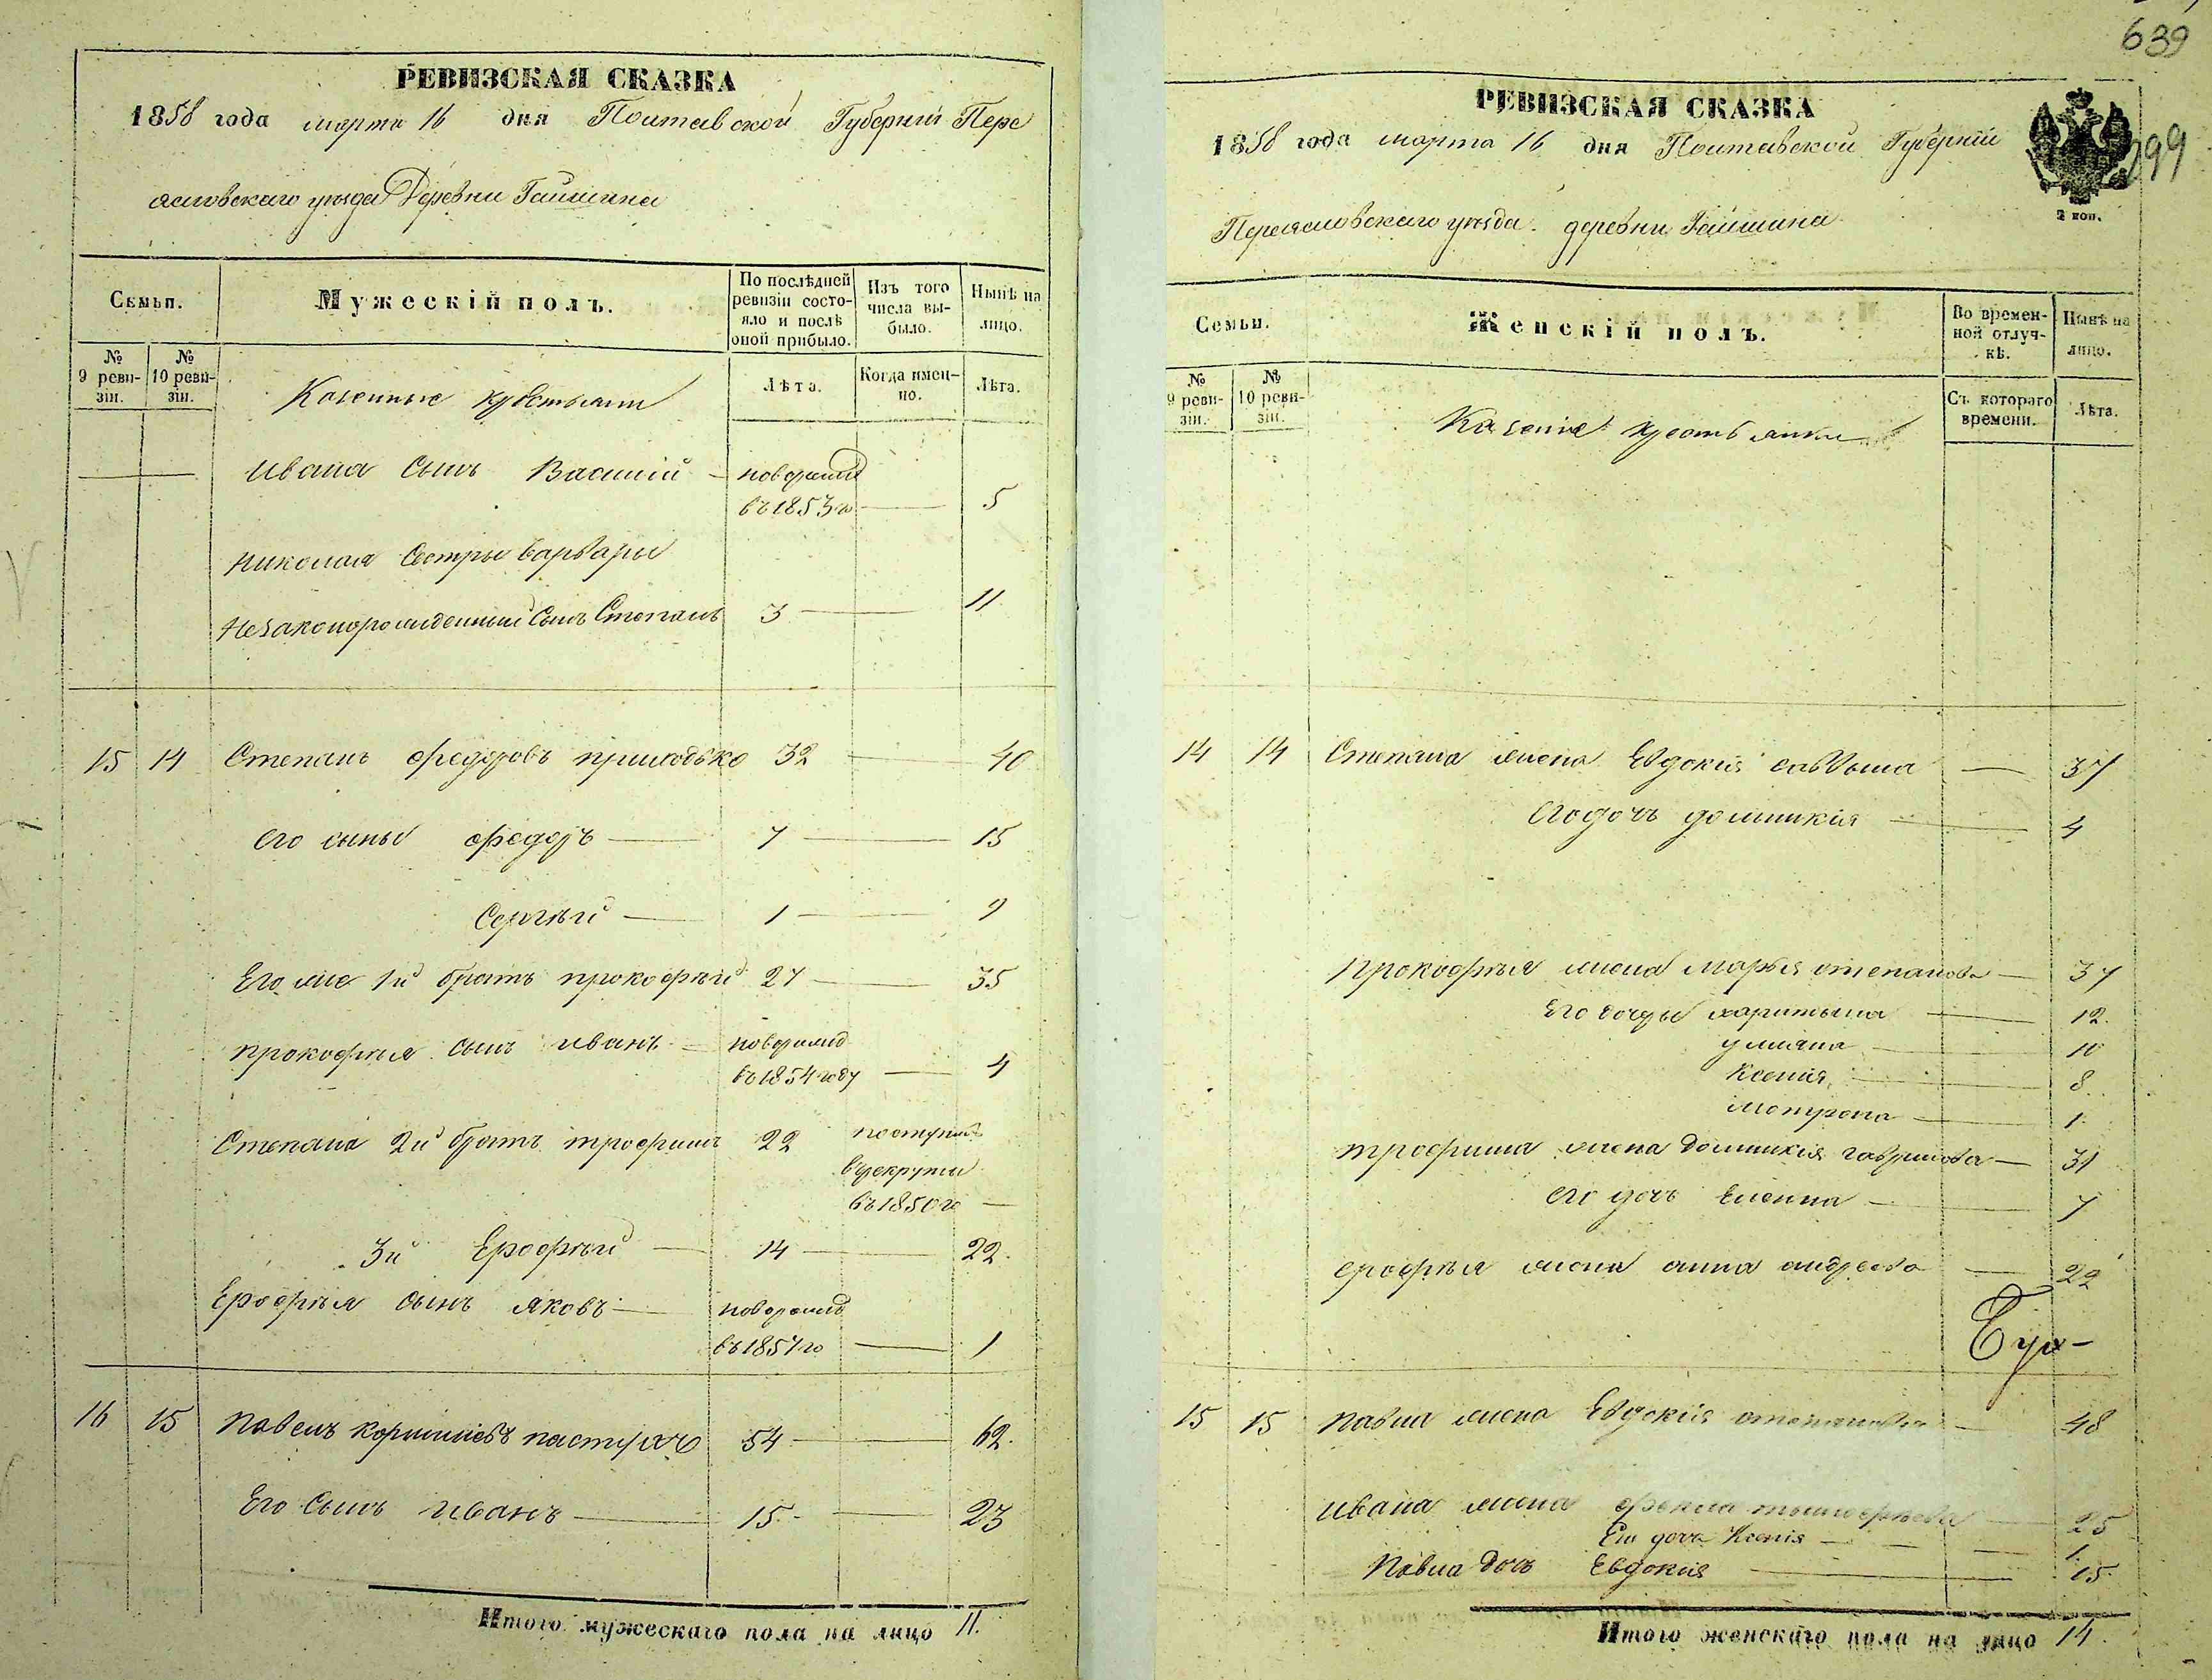 РЕВИЗСКАЯ СКАЗКА
1858 года марта 16 дня Полтавской Губерніи Пере
яславскаго уѣзда Деревни Гайшина
Семьи.
Мужескій полъ.
По послѣдней ревизіи состояло и послѣ оной прибыло.
Изъ того числа выбыло.
Нынѣ на лицо.
№ 9 ревизіи.
№ 10 ревизіи.
Казенные крестьяни
Лѣта.
Когда именно.
Лѣта.
Ивана Сынъ Василій — новорожд
въ 1853 го — 5
Николая Сестры Варвары
Незаконорожденный Сынъ Степанъ 3 — 11
15 14 Степанъ федоровъ приходько 32 — 40
его сыны федоръ — 7 — 15
Сергѣй — 1 — 9
Его же 1й братъ прокофѣй 27 — 35
прокофѣя сынъ иванъ — новорожд
въ 1854 году — 4
Степана 2й братъ трофимъ 22 поступилъ
в рекруты
въ 1850 го —
3й Ерофѣй — 14 — 22.
Ерофѣя сынъ яковъ — новорожд
въ 1857 го — 1
16 15 Павелъ Корнилiевъ пастухъ 54 — 62.
Его Сынъ иванъ — 15 — 23
Итого мужескаго пола на лицо 11.
639
РЕВИЗСКАЯ СКАЗКА
1858 года марта 16 дня Полтавской Губерніи
299
2 коп.
Переяславскаго уѣзда. деревни Гайшина
Семьи.
Женскій полъ.
Во временной отлучкѣ.
Нынѣ на лицо.
№ 9 ревизіи.
№ 10 ревизіи.
Казеніе крестьянки
Съ котораго времени.
Лѣта.
14 14 Степана жена Евдокія саввына — 37
его дочь домникія — 4
Прокофѣя жена марья степанова — 37
его дочеры харитына — 12.
улияна — 10
Ксенія — 8
мотрона — 1
трофима жена Домникия гаврилова — 31
его дочь Еленна — 7
ерофѣя жена анна андреева — 22
15 15 Павла жена Евдокія степанова — 48
Ивана жена фекла тымофѣева — 25
Его дочь Ксенія — 1.
Павла Дочь Евдокия — 15.
Итого женскаго пола на лицо 14.